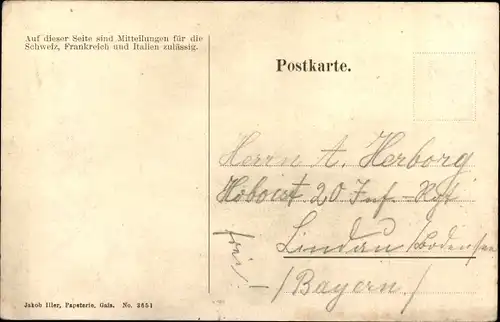 Auf dieser Seite sind Mitteilungen für die
Schweiz, Frankreich und Italien zulässig.
Postkarte.
Herrn A. Herborg
Hoboist 20 Inf.-Rgt
Lindau /Bodensee
/Bayern/
Jakob Iller, Papeterie, Gais. No. 2651